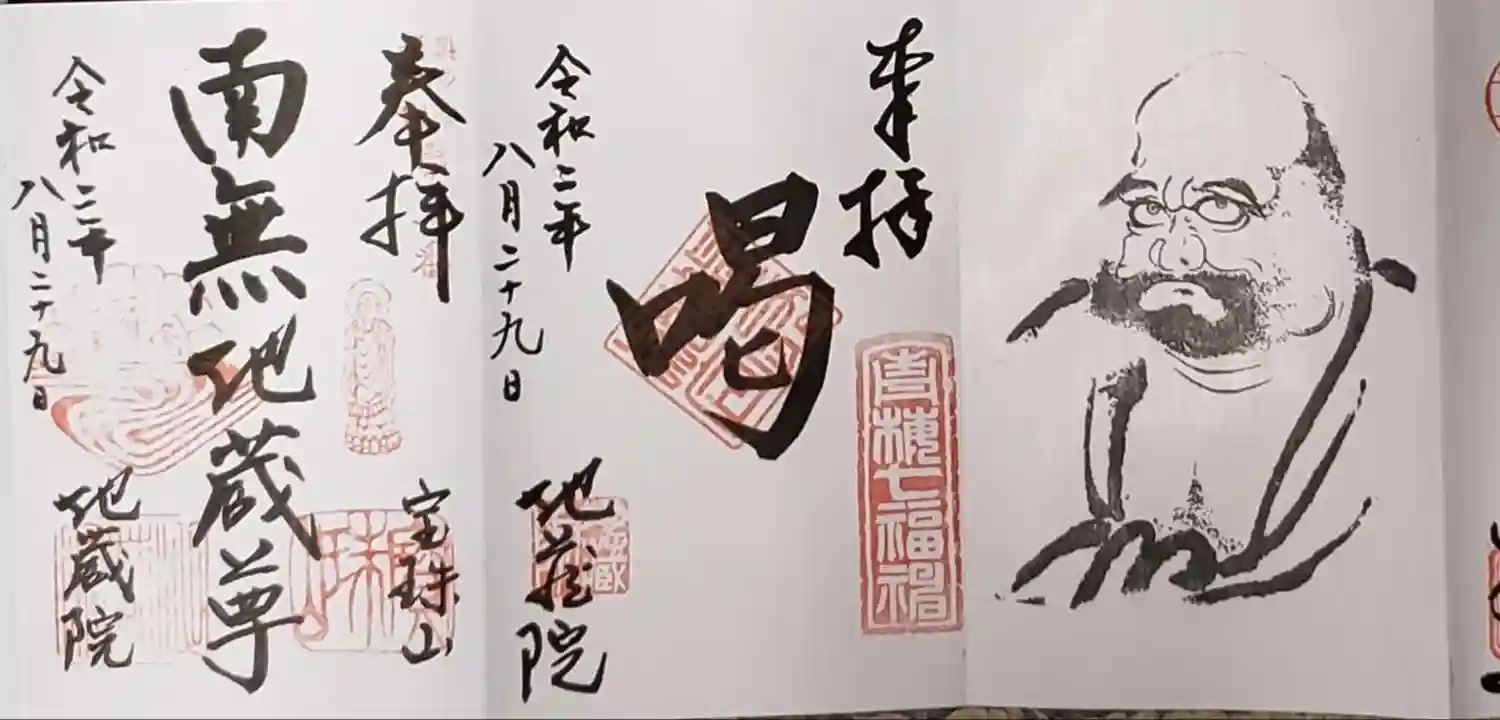 奉拝
喝
青梅七福神
令和二年
八月二十九日
地蔵院
奉拝
宝珠山
南無地蔵尊
令和二年
八月二十九日
地蔵院